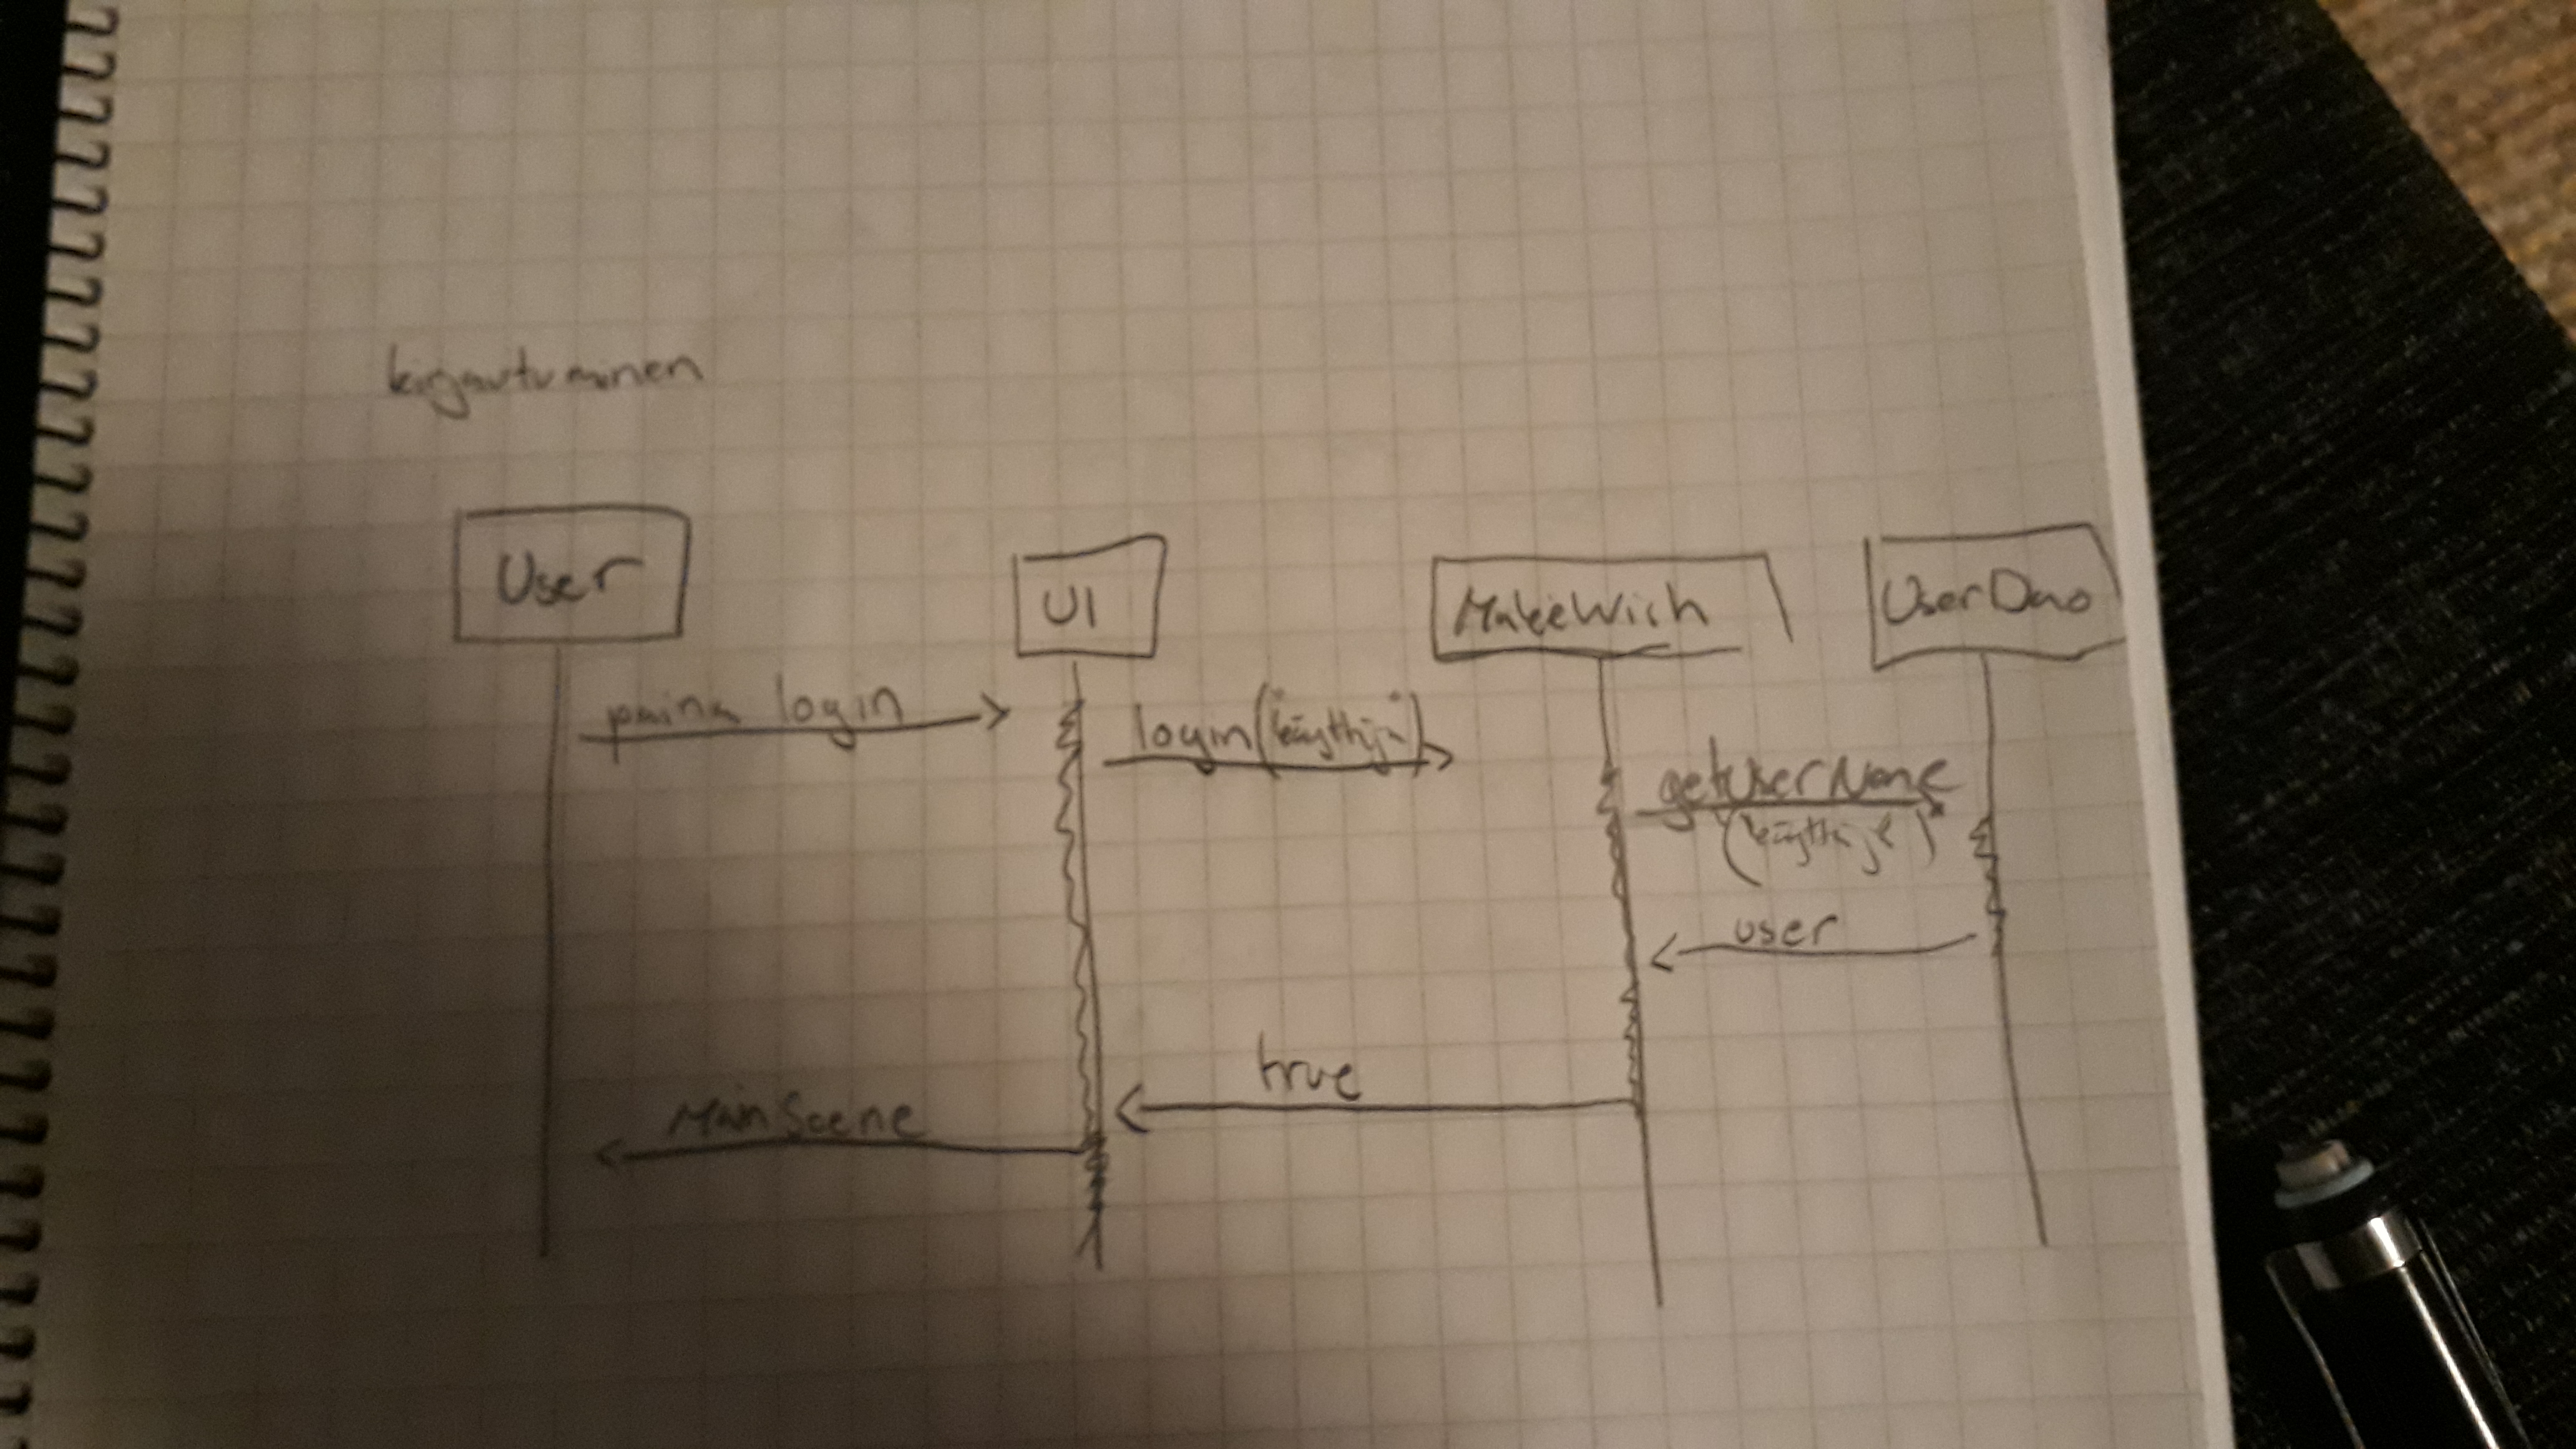 kirjautuminen
User
UI
MakeWish
UserDao
paina login
login("käyttäjä")
getUserName
("käyttäjä")
user
true
MainScene